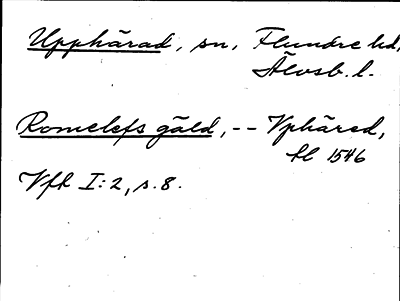 Upphärad, sn, Flundre hd,
Älvsb. l.
Romelefs gäld, -- Vphäred,
Hl 1546
Vfk I:2, s. 8.